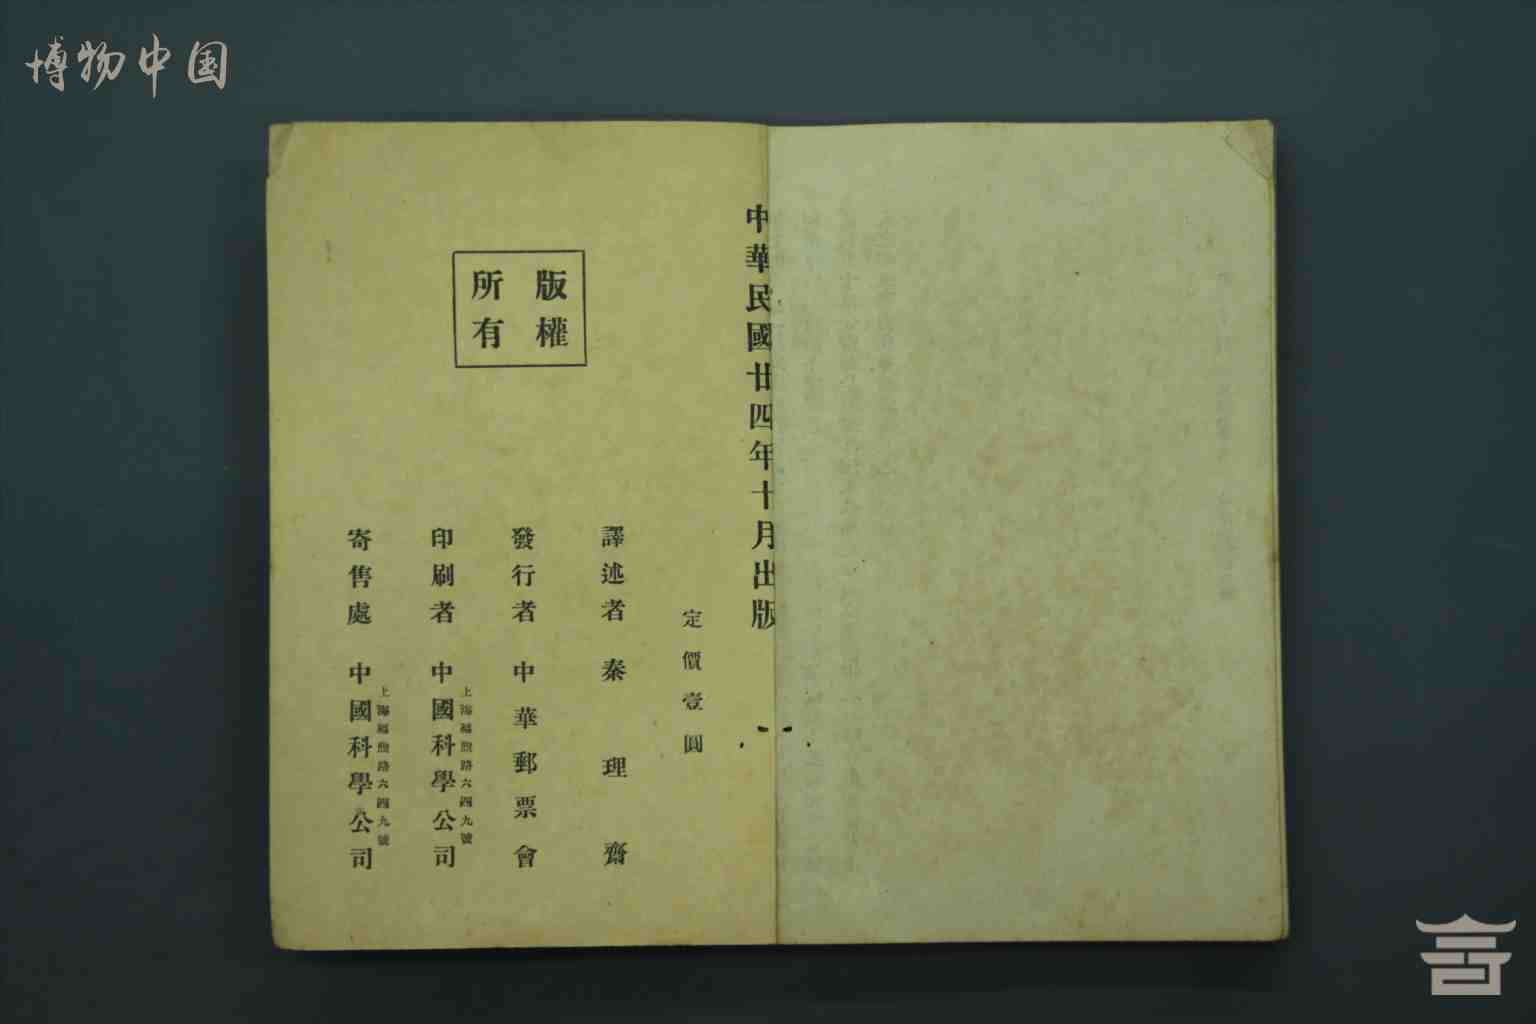 博物中国
中華民國廿四年十月出版
定價壹圓
版權
所有
譯述者 秦理齋
發行者 中華郵票會
上海福煦路六四九號
印刷者 中國科學公司
上海福煦路六四九號
寄售處 中國科學公司